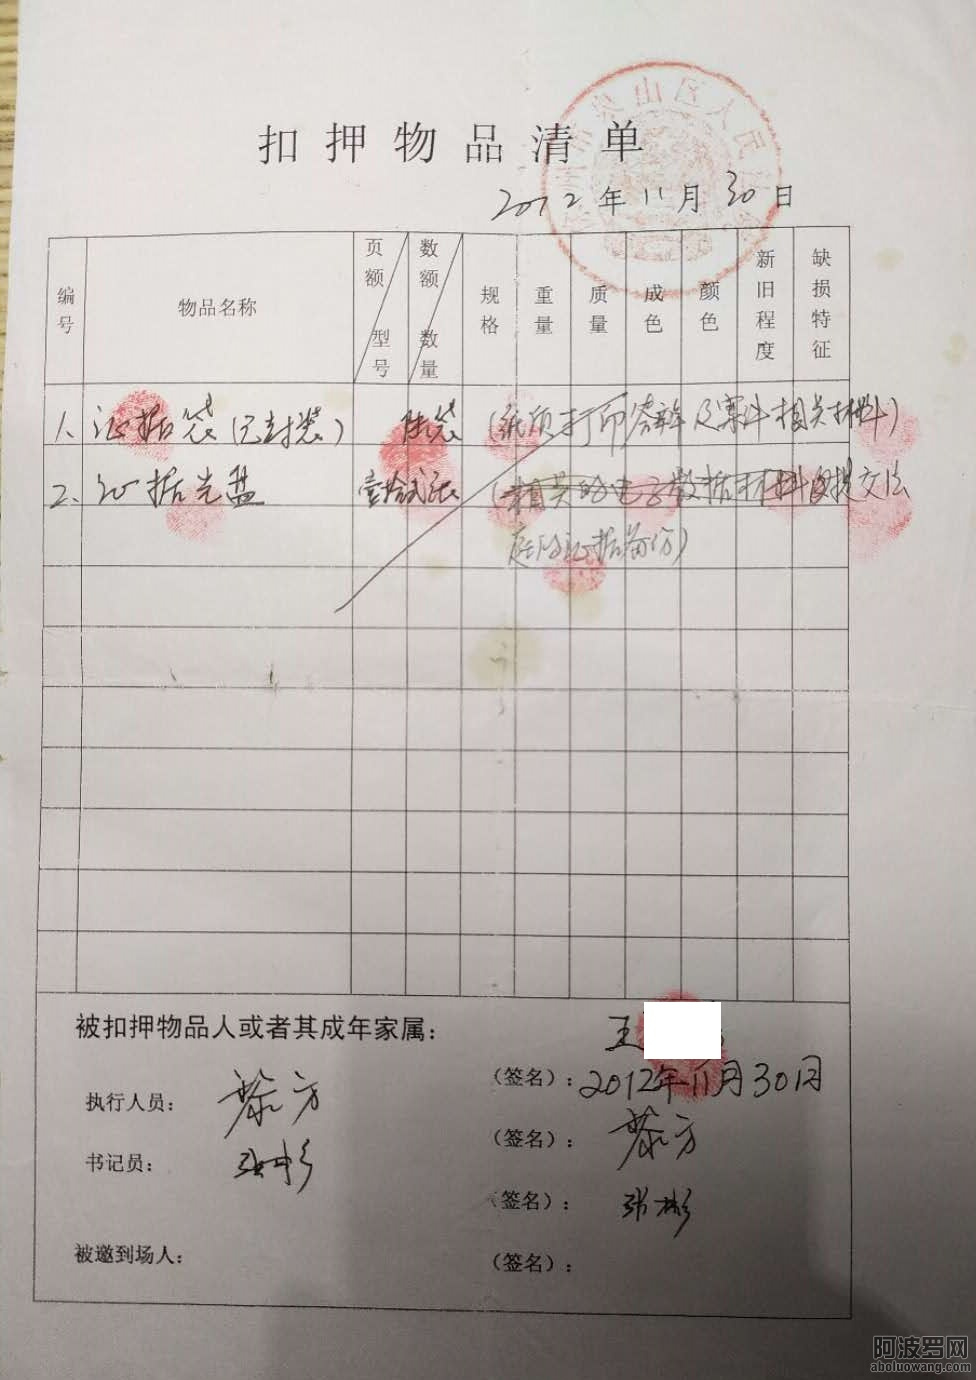 扣押物品清单
2012年11月30日
编号 物品名称 页额 型号 数额 数量 规格 重量 质量 成色 颜色 新旧程度 缺损特征
1、证据袋（已封装） 陆袋 （纸质打印答辩及案件相关材料）
2、证据光盘 壹拾贰张 （相关的电子数据材料及提交法
庭的证据备份）
被扣押物品人或者其成年家属：
王
（签名）：2012年11月30日
执行人员： （签名）：
书记员：张彬 （签名）：张彬
被邀到场人： （签名）：
阿波罗网
aboluowang.com